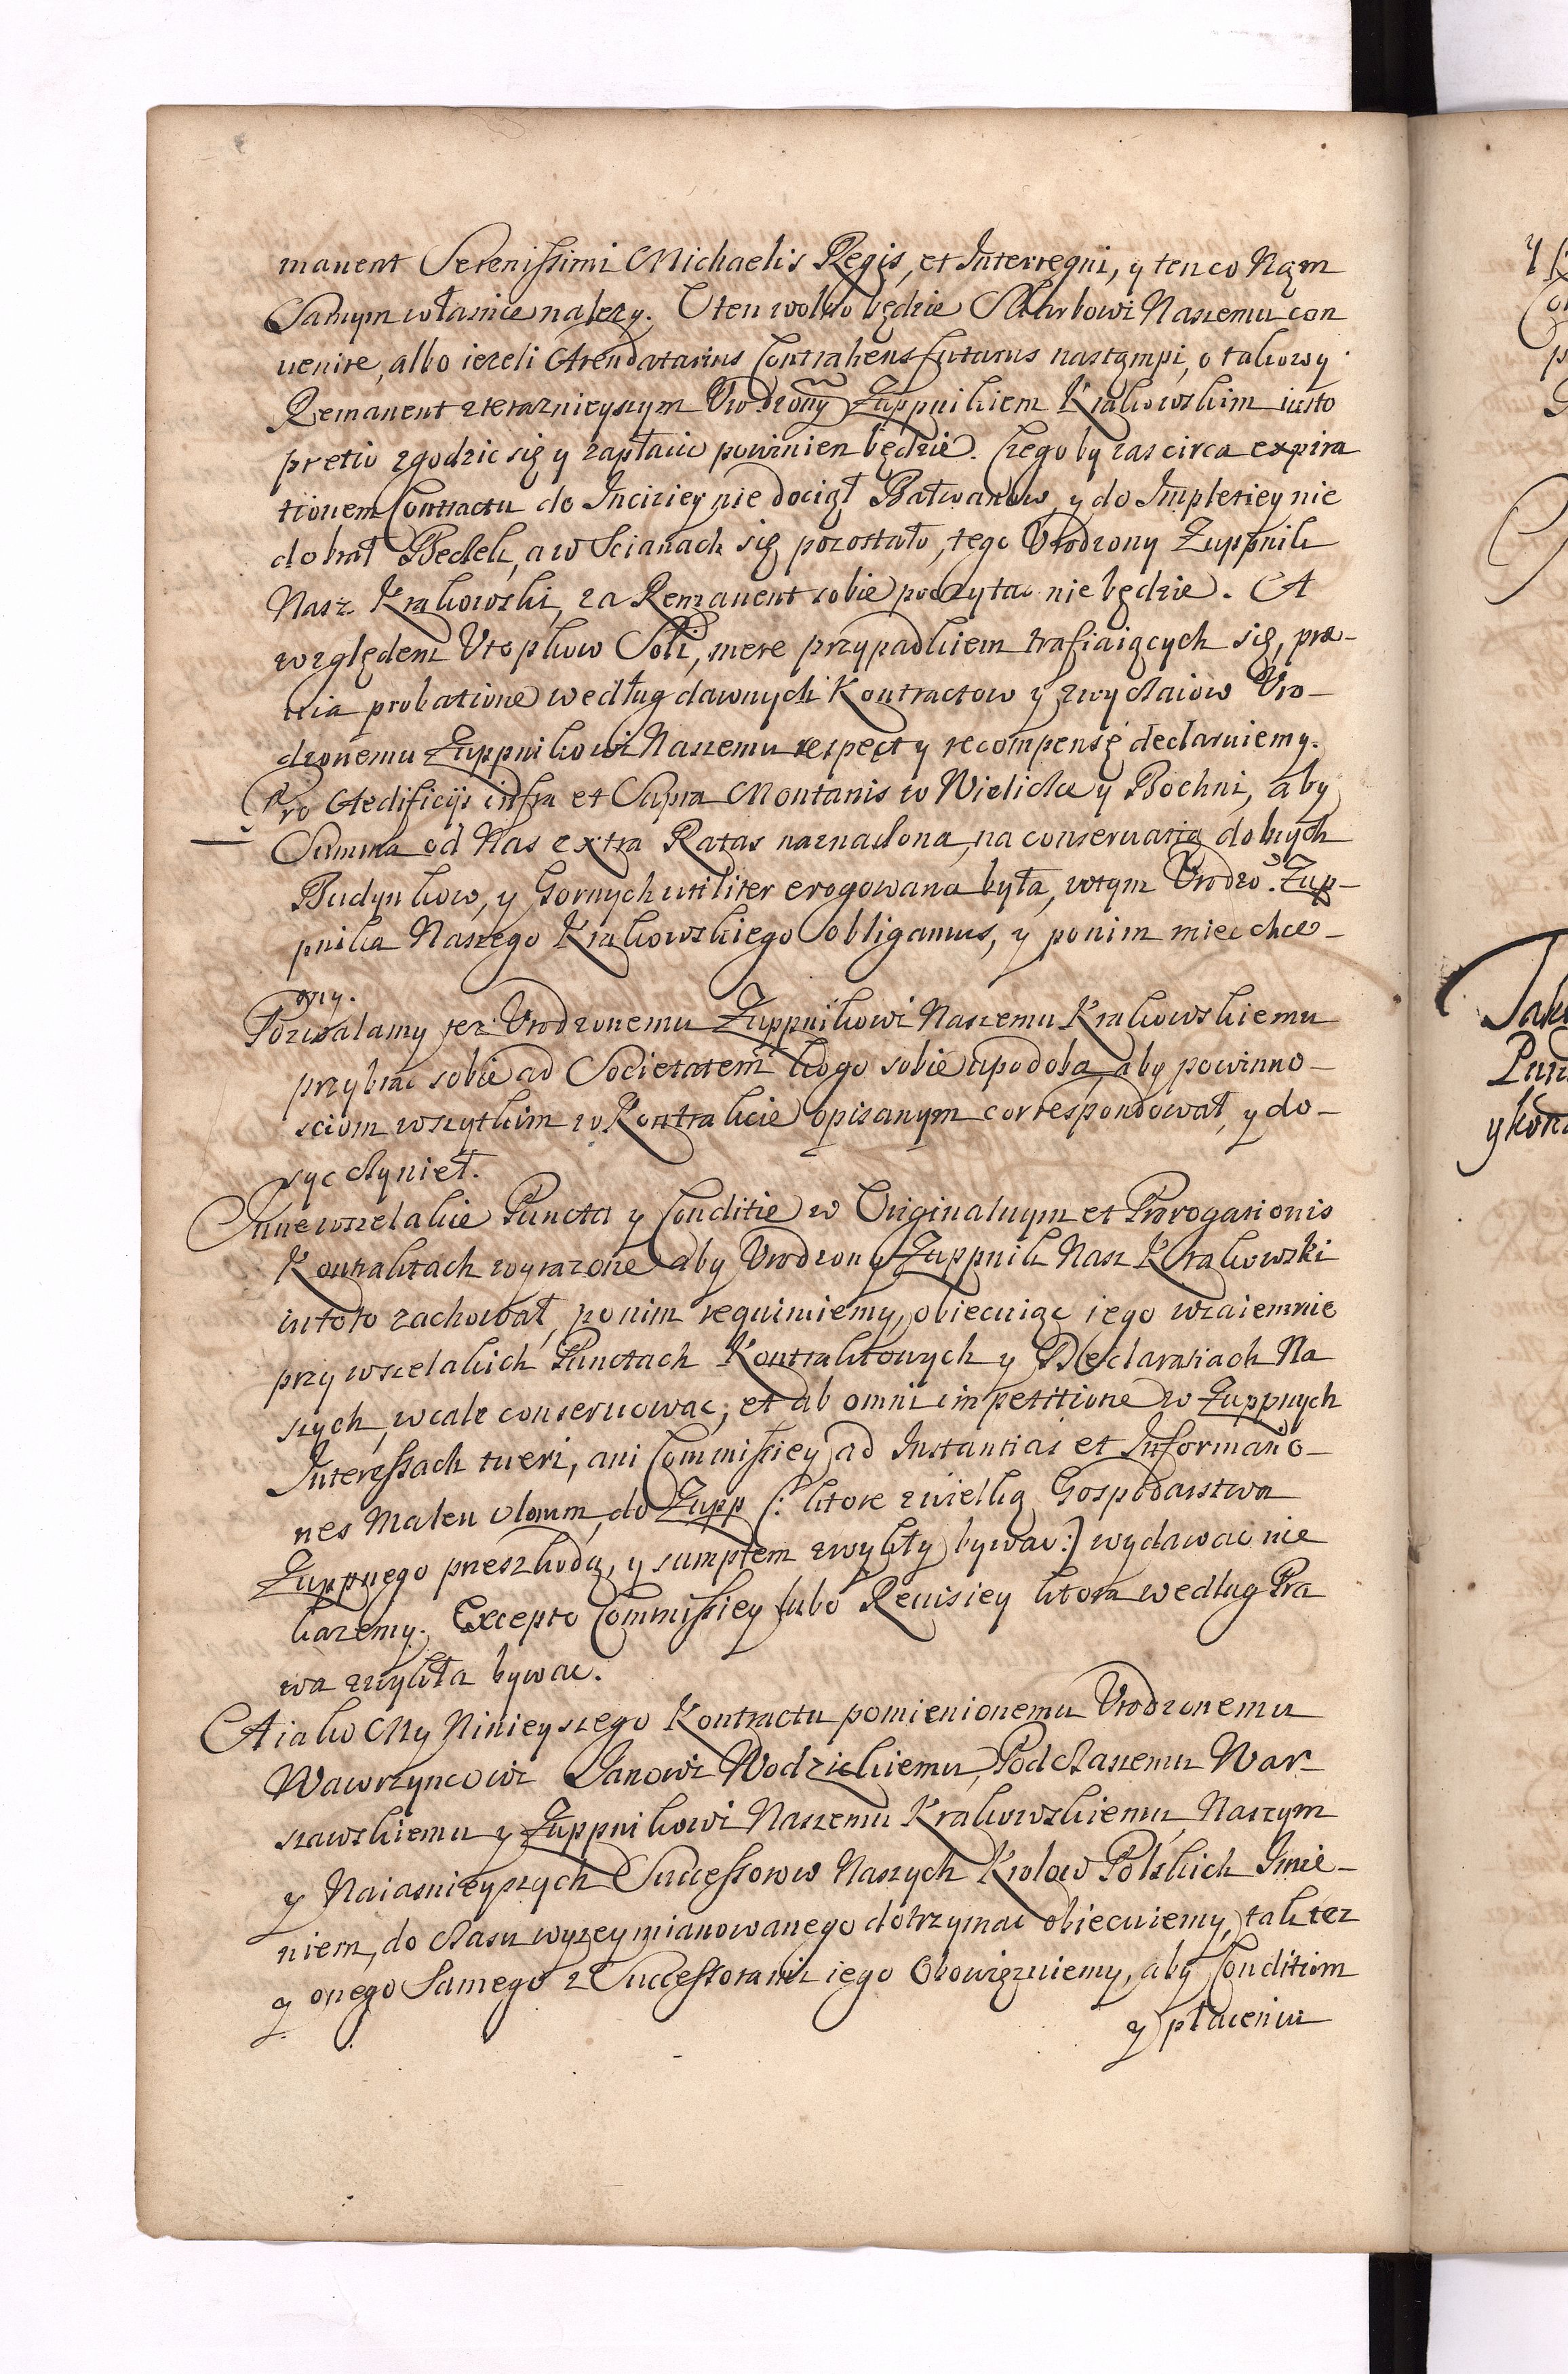 manent Serenissimi Michaelis Regis, et Interregni, y ten co Nąm
Samym własnie nalezy. O ten wolno będzie Skarbowi Naszemu con
uenire, albo iezeli Arendatarius Contrahens futurus nastąmpi, o takowy
Remanent zteraznieyszym Vrodzony Zuppnikiem Krakowskim iusto
pretio zgodzic się y zapłacic powinien będzie. Czego by zas circa expira
tionem Contractu do Inciziey nie dociął Bałwanow, y do Impletiey nie
dobrał Beczek, a w Scianach się pozostało, tego Vrodzony Zuppnik
Nasz Krakowski, za Remanent sobie poczytac nie będzie. A
względem Vtopkow Soli, mere przypadkiem trafiaiących się, præ-
uia probatione według dawnych Kontractow y zwyczaiow Vro-
dzonemu Zuppnikowi Naszemu respect y recompensę declaruiemy.
Pro Aedificijs infra et Supra Montanis w Wieliczce y Bochni, aby
Summa od Nas extra Ratas naznaczona, na conseruatią dolnych
Budynkow, y Gornych utiliter erogowana była, wtym Vrodzo. Zup-
pnika Naszego Krakowskiego obligamus, y ponim miec chce-
my.
Pozwalamy tez Vrodzonemu Zuppnikowi Naszemu Krakowskiemu
przybrac sobie ad Societatem kogo sobie upodoba, aby powinno-
sciom wszytkim w Kontrakcie opisanym correspondował, y do-
syc czynieł.
Inne wszelakie Puncta y Conditie w Originalnym et Prorogationis
Kontraktach wyrazone aby Vrodzony Zuppnik Nasz Krakowski
in toto zachował, ponim requiruiemy, obiecuiąc iego wzaiemnie
przy wszelakich Punctach Kontraktowych y Declaratiach Na
szych, wcale conseruowac, et ab omni impetitione w Zuppnych
Interessach tueri, ani Commissiey ad Instantias et Informatio-
nes Maleuolorum, do Zupp (: ktore zwielką Gospodarstwa
Zuppnego przeszkodą, y sumptem zwykły bywac :) wydawac nie
kazemy. Excepto Commissiey lubo Reuisiey ktora według Pra
wa zwykła bywac.
A iako My Ninieyszego Kontractu pomienionemu Vrodzonemu
Wawrzyncowi Janowi Wodzickiemu, Podczaszemu War-
szawskiemu y Zuppnikowi Naszemu Krakowskiemu, Naszym
y Naiasnieyszych Successorow Naszych Krolow Polskich Imie-
niem, do czasu wyzey mianowanego dotrzymac obiecuiemy, tak tez
y onego Samego z Successorami iego Obowięzuiemy, aby Conditiom
y płaceniu